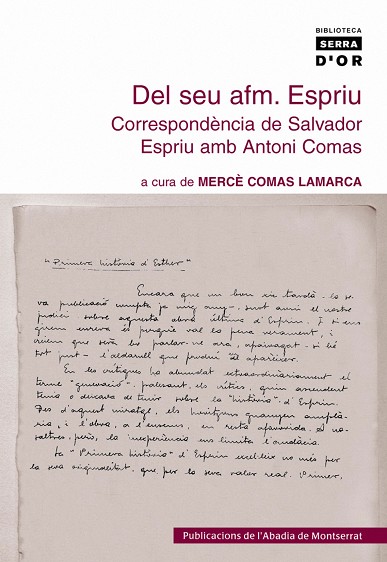 BIBLIOTECA
SERRA
D'OR
Del seu afm. Espriu
Correspondència de Salvador
Espriu amb Antoni Comas
a cura de MERCÈ COMAS LAMARCA
"Primera història d'Esther"
Encara que un bon xic tardà - la se-
va publicació compta ja mig any -, surt avui el nostre
judici sobre aquesta obra última d'Espriu. I si ens
és perquè val la pena verament, i
creiem que serà bo parlar-ne ara, apaivagat - si bé
tot just - l'aldarull que produí al aparèixer.
En les crítiques ha abundat extraordinàriament el
terme "genevació". palesant, els crítics, quin ascendent
tenia o deixava de tenir sobre la "història" d'Espriu.
Des d'aquest miratge, els horitzons guanyen amplà-
ria, i l'obra, a l'ensems, en resta afavorida. A no-
saltres, però, la inexperiència ens limita l'audàcia.
La "Primera història" d'Espriu excel·leix no més per
la seva originalitat, que per la seva valor real. Primer,
Publicacions de l'Abadia de Montserrat